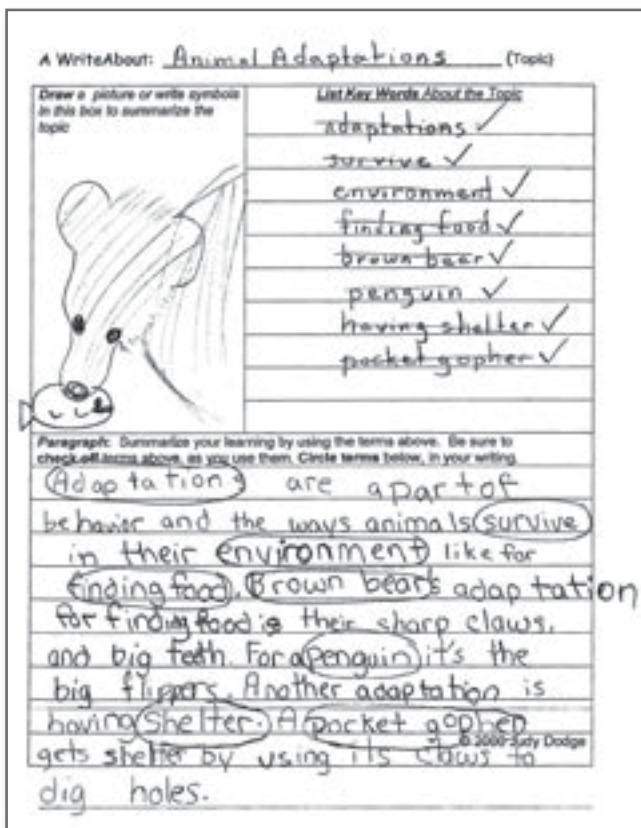 A WriteAbout: Animal Adaptations (Topic)
Draw a picture or write symbols
in this box to summarize the
topic
List Key Words About the Topic
adaptations ✓
survive ✓
environment ✓
finding food ✓
brown bear ✓
penguin ✓
having shelter ✓
pocket gopher ✓
Paragraph: Summarize your learning by using the terms above. Be sure to
check off terms above, as you use them. Circle terms below, in your writing.
Adaptations are apart of
behavior and the ways animals survive
in their environment like for
finding food. Brown bears adaptation
for finding food is their sharp claws,
and big teeth. For a penguin it's the
big flippers. Another adaptation is
having shelter. A pocket gopher
© 2000 Judy Dodge
gets shelter by using its claws to
dig holes.